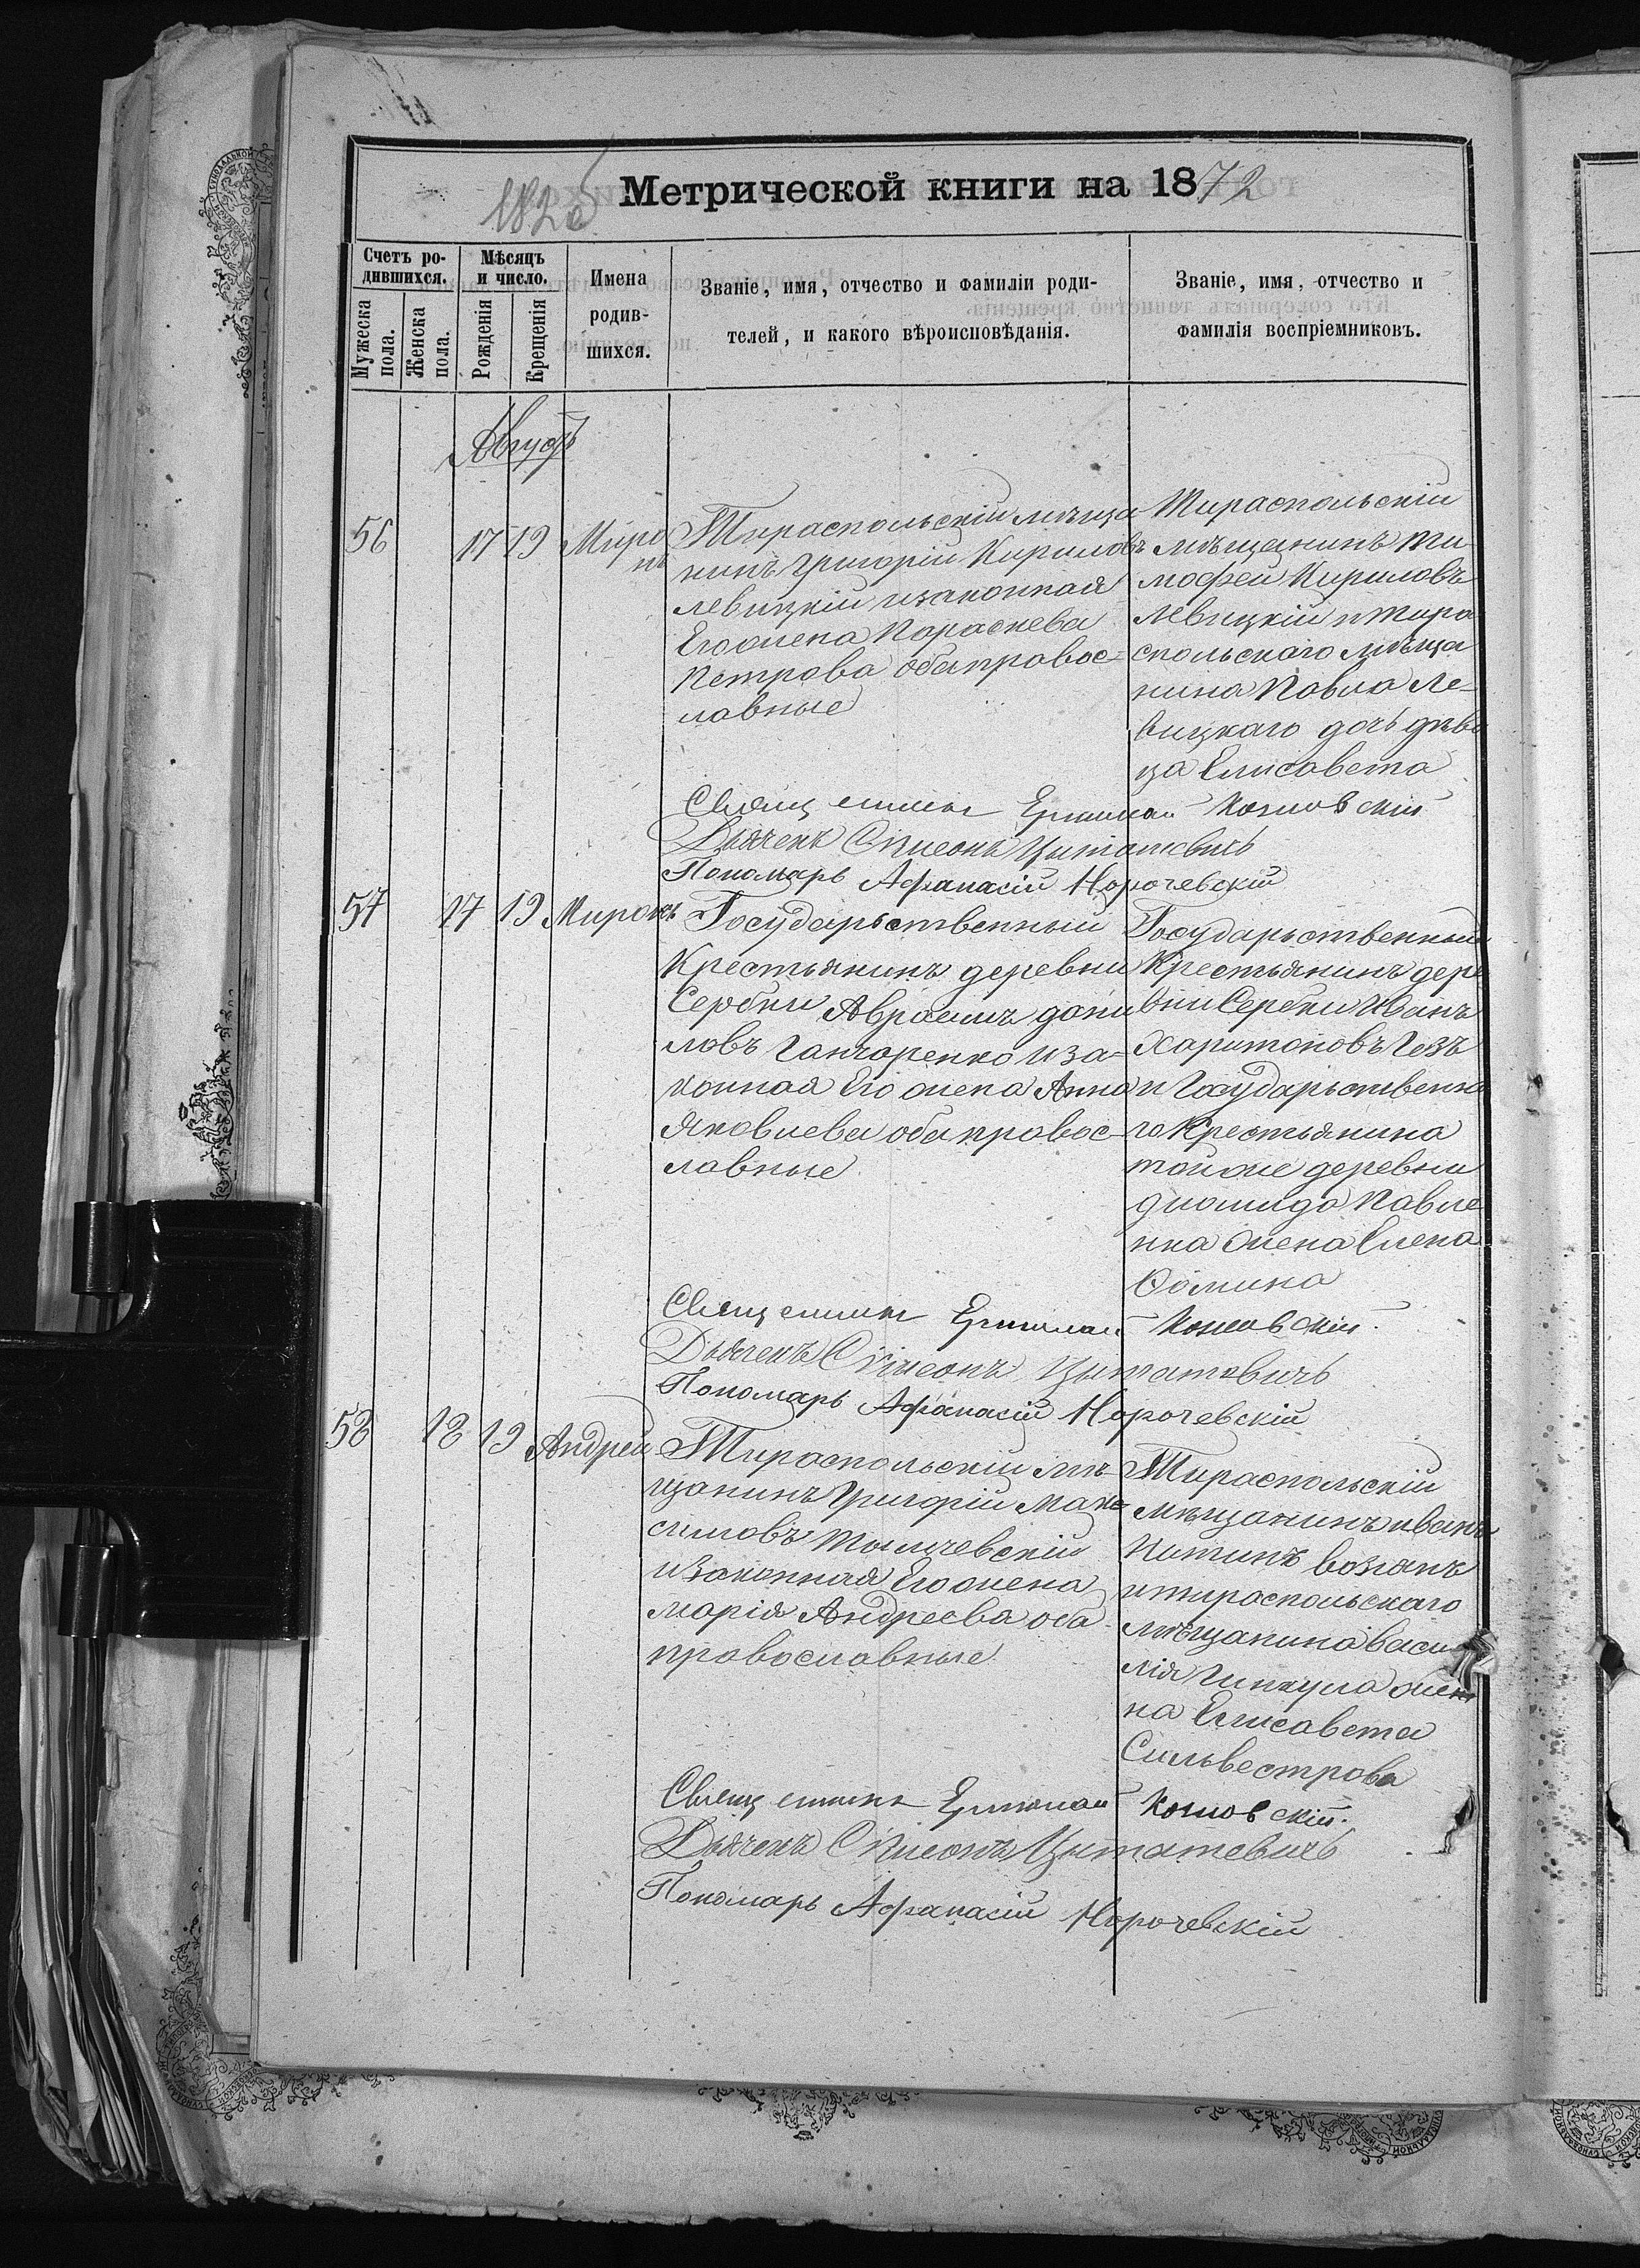 Метрической книги на 1872
182 об
Счетъ ро-
дившихся.
Мужеска
пола.
Женска
пола.
Мѣсяцъ
и число.
Рожденія
Крещенія
Имена
родив-
шихся.
Званіе, имя, отчество и фамиліи роди-
телей, и какого вѣроисповѣданія.
Званіе, имя, отчество и
фамилія воспріемниковъ.
Августъ
56 17 19 Миро
нъ
Тираспольскій мѣща
нинъ Григорій Кириловъ
Левицкій и законная
Его жена Параскева
Петрова оба правос-
лавные
Тираспольскій
мѣщанинъ Ти-
мофей Кириловъ
Левицкій и Тира
спольскаго мѣща
нина Павла Ле-
вицкаго дочь дѣви
ца Елисавета
Священникъ Ермолай Козловскій
Дьячекъ Симеонъ
Пономарь Афанасій Норочевскій
57 17 19 Миронъ
Государьственный
Крестьянинъ деревни
Сербки Авраамъ Дани
ловъ Ганчаренко и за-
конная Его жена Анна
Яковлева оба правос-
лавные
Государьственный
Крестьянинъ дере
вни Сербки Иванъ
Харитоновъ
и Государьственна
го Крестьянина
той же деревни
Диомида Павле
нка жена Елена
Фомина
Священникъ Ермолай Козловскій.
Дьячекъ Симеонъ
Пономарь Афанасій Норочевскій
58 18 19 Андрей
Тираспольскій мѣ-
щанинъ Григорій Мак-
симовъ
и законная Его жена
Марія Андреева оба
православные
Тираспольскій
мѣщанинъ Иванъ
Возіанъ
и тираспольскаго
мѣщанина Васи
лія Гинкула жен
на Елисавета
Сильвестрова
Священникъ Ермолай Козловскій.
Дьячекъ Симеонъ
Пономарь Афанасій Норочевскій